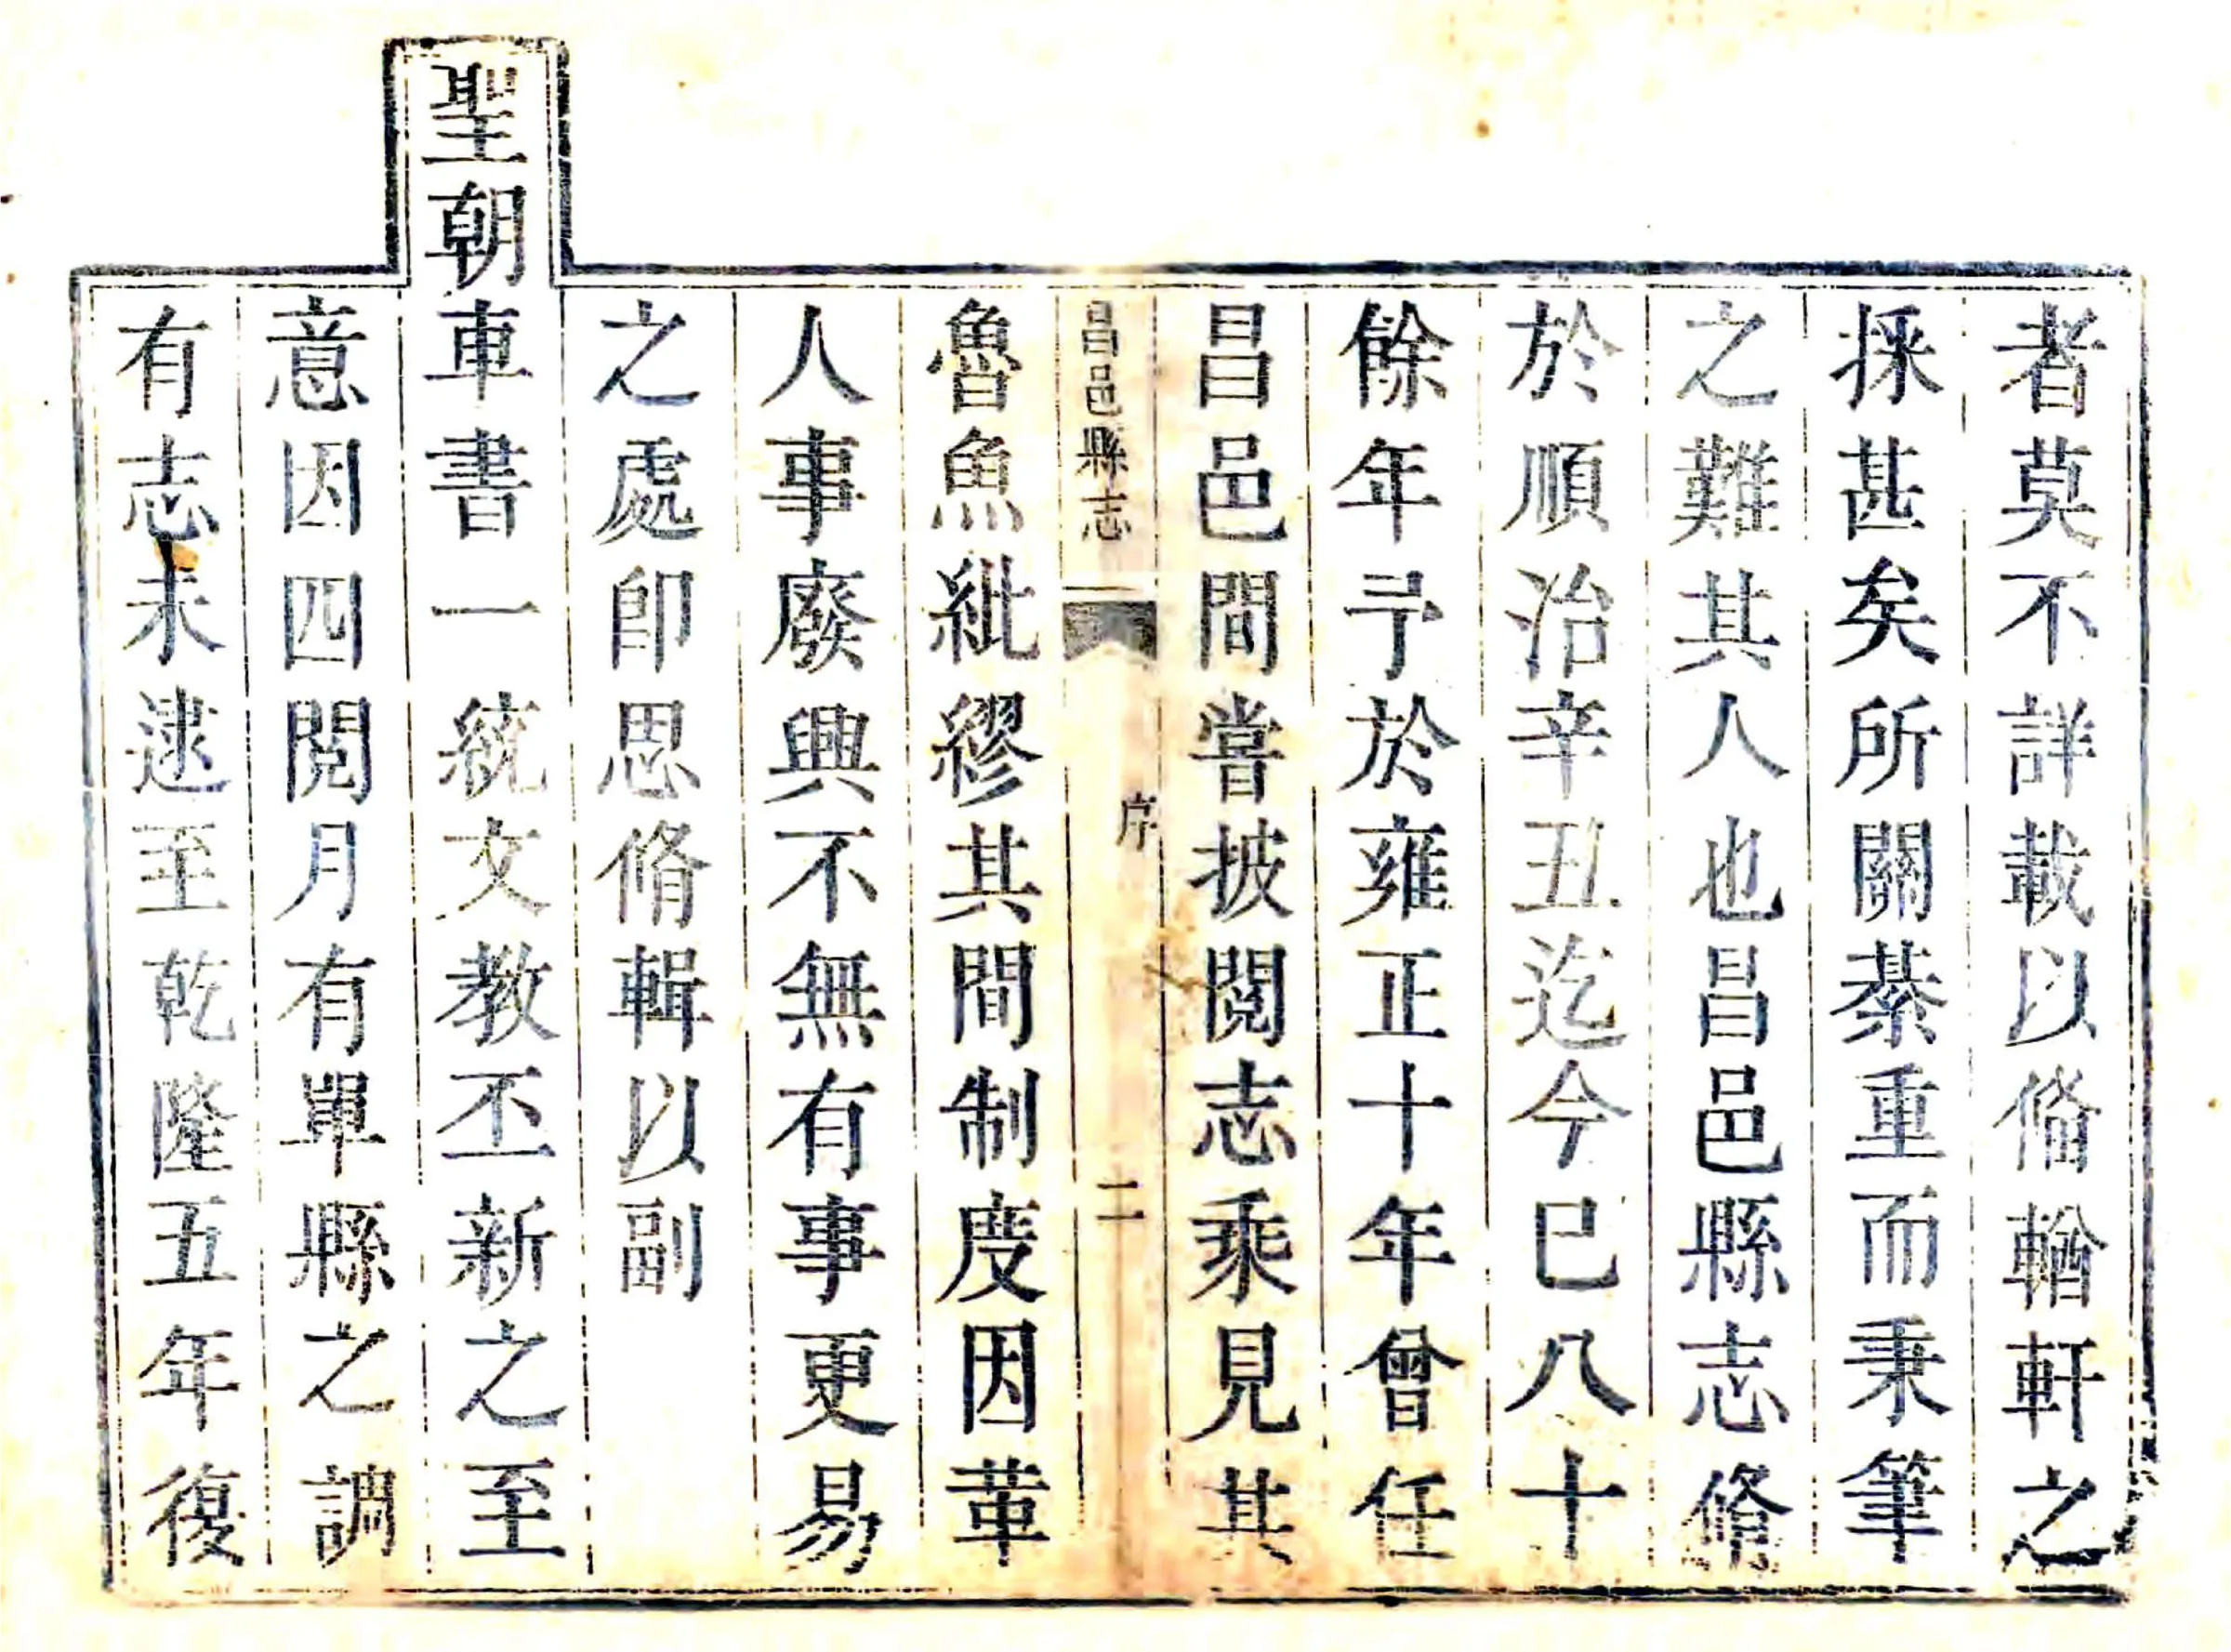 者莫不詳載以俻輶軒之
採甚矣所關綦重而秉筆
之難其人也昌邑縣志脩
於順治辛丑迄今已八十
餘年予於雍正十年曾任
昌邑間嘗披閱志乘見其
昌邑縣志 序 二
魯魚紕繆其間制度因革
人事廢興不無有事更易
之處卽思脩輯以副
聖朝車書一統文教丕新之至
意因四閱月有單縣之調
有志未逮至乾隆五年復